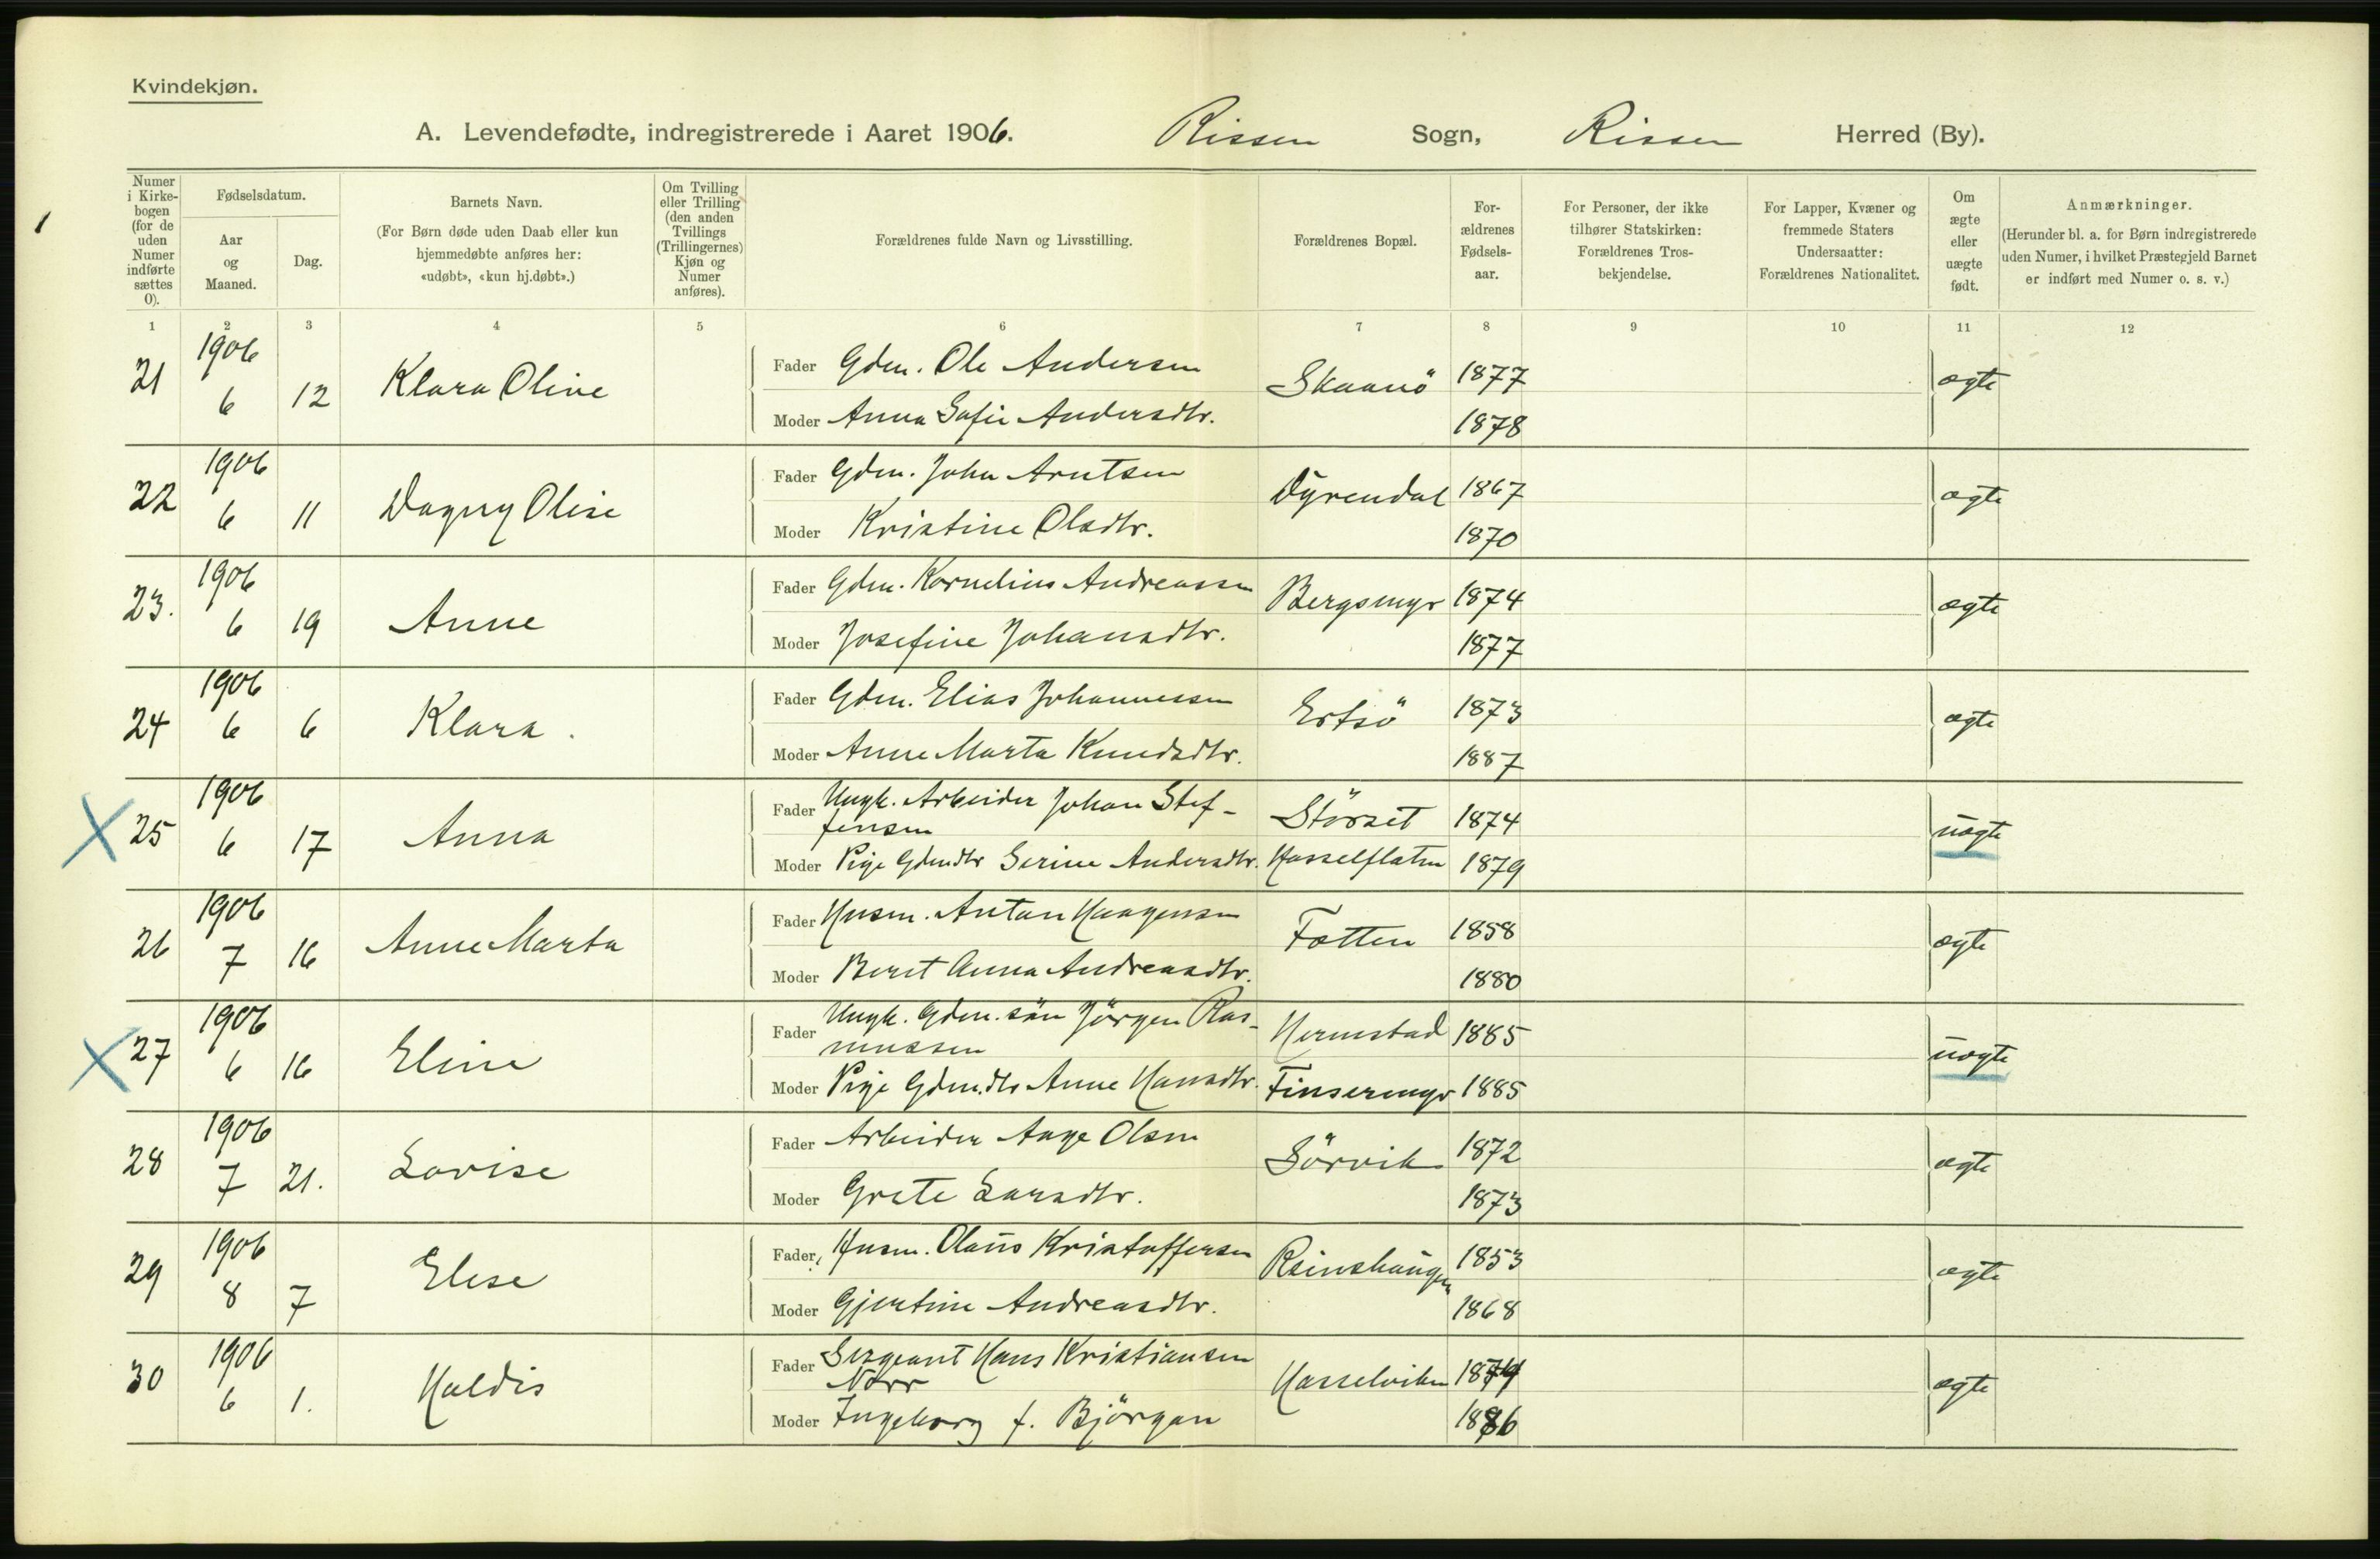 Kvindekjøn.
A. Levendefødte, indregistrerede i Aaret 1906. Rissen Sogn, Rissen Herred (By).
Numer i Kirkebogen (for de uden Numer indførte sættes 0).
Fødselsdatum.
Aar og Maaned.
Dag.
Barnets Navn.
(For Børn døde uden Daab eller kun hjemmedøbte anføres her: «udøbt», «kun hj.døbt».)
Om Tvilling eller Trilling (den anden Tvillings (Trillingernes) Kjøn og Numer anføres).
Forældrenes fulde Navn og Livsstilling.
Forældrenes Bopæl.
Forældrenes Fødselsaar.
For Personer, der ikke tilhører Statskirken: Forældrenes Trosbekjendelse.
For Lapper, Kvæner og fremmede Staters Undersaatter: Forældrenes Nationalitet.
Om ægte eller uægte født.
Anmærkninger.
(Herunder bl. a. for Børn indregistrerede uden Numer, i hvilket Præstegjeld Barnet er indført med Numer o. s. v.)
1 2 3 4 5 6 7 8 9 10 11 12
21 1906 6 12 Klara Oline Fader Gdm. Ole Andersen Skaanö 1877 ægte
Moder Anna Sofie Andersdtr. 1878
22 1906 6 11 Dagny Olise Fader Gdm. John Arntsen Dyrendal 1867 ægte
Moder Kristine Olsdtr. 1870
23. 1906 6 19 Anne Fader Gdm. Kornelius Andreassen Bergsmyr 1874 ægte
Moder Josefine Johansdtr. 1877
24 1906 6 6 Klara. Fader Gdm. Elias Johannessen Ertsö 1873 ægte
Moder Anne Marta Knudsdtr. 1887
25 1906 6 17 Anna Fader Ungk. Arbeider Johan Stef-
fensen Störset 1874 uægte
Moder Pige Gdmdtr Serine Andersdtr. Hasselflaten 1879
26 1906 7 16 Anne Marta Fader Husm. Anton Haagensen Fatten 1858 ægte
Moder Beret Anna Andreasdtr. 1880
27 1906 6 16 Eline Fader Ungk. Gdm. sön Jörgen Ras-
mussen Hermstad 1885 uægte
Moder Pige Gdm.dtr Anne Hansdtr. Finsermyr 1885
28 1906 7 21. Lovise Fader Arbeider Aage Olsen Sörvik 1872 ægte
Moder Grete Larsdtr. 1873
29 1906 8 7 Elise Fader Husm. Olaus Kristoffersen Reinshaugen 1853 ægte
Moder Gjertine Andreasdtr. 1868
30 1906 6 1. Haldis Fader Sergeant Hans Kristiansen
Norr Hasselviken ægte
Moder Ingeborg f. Björgan 1886